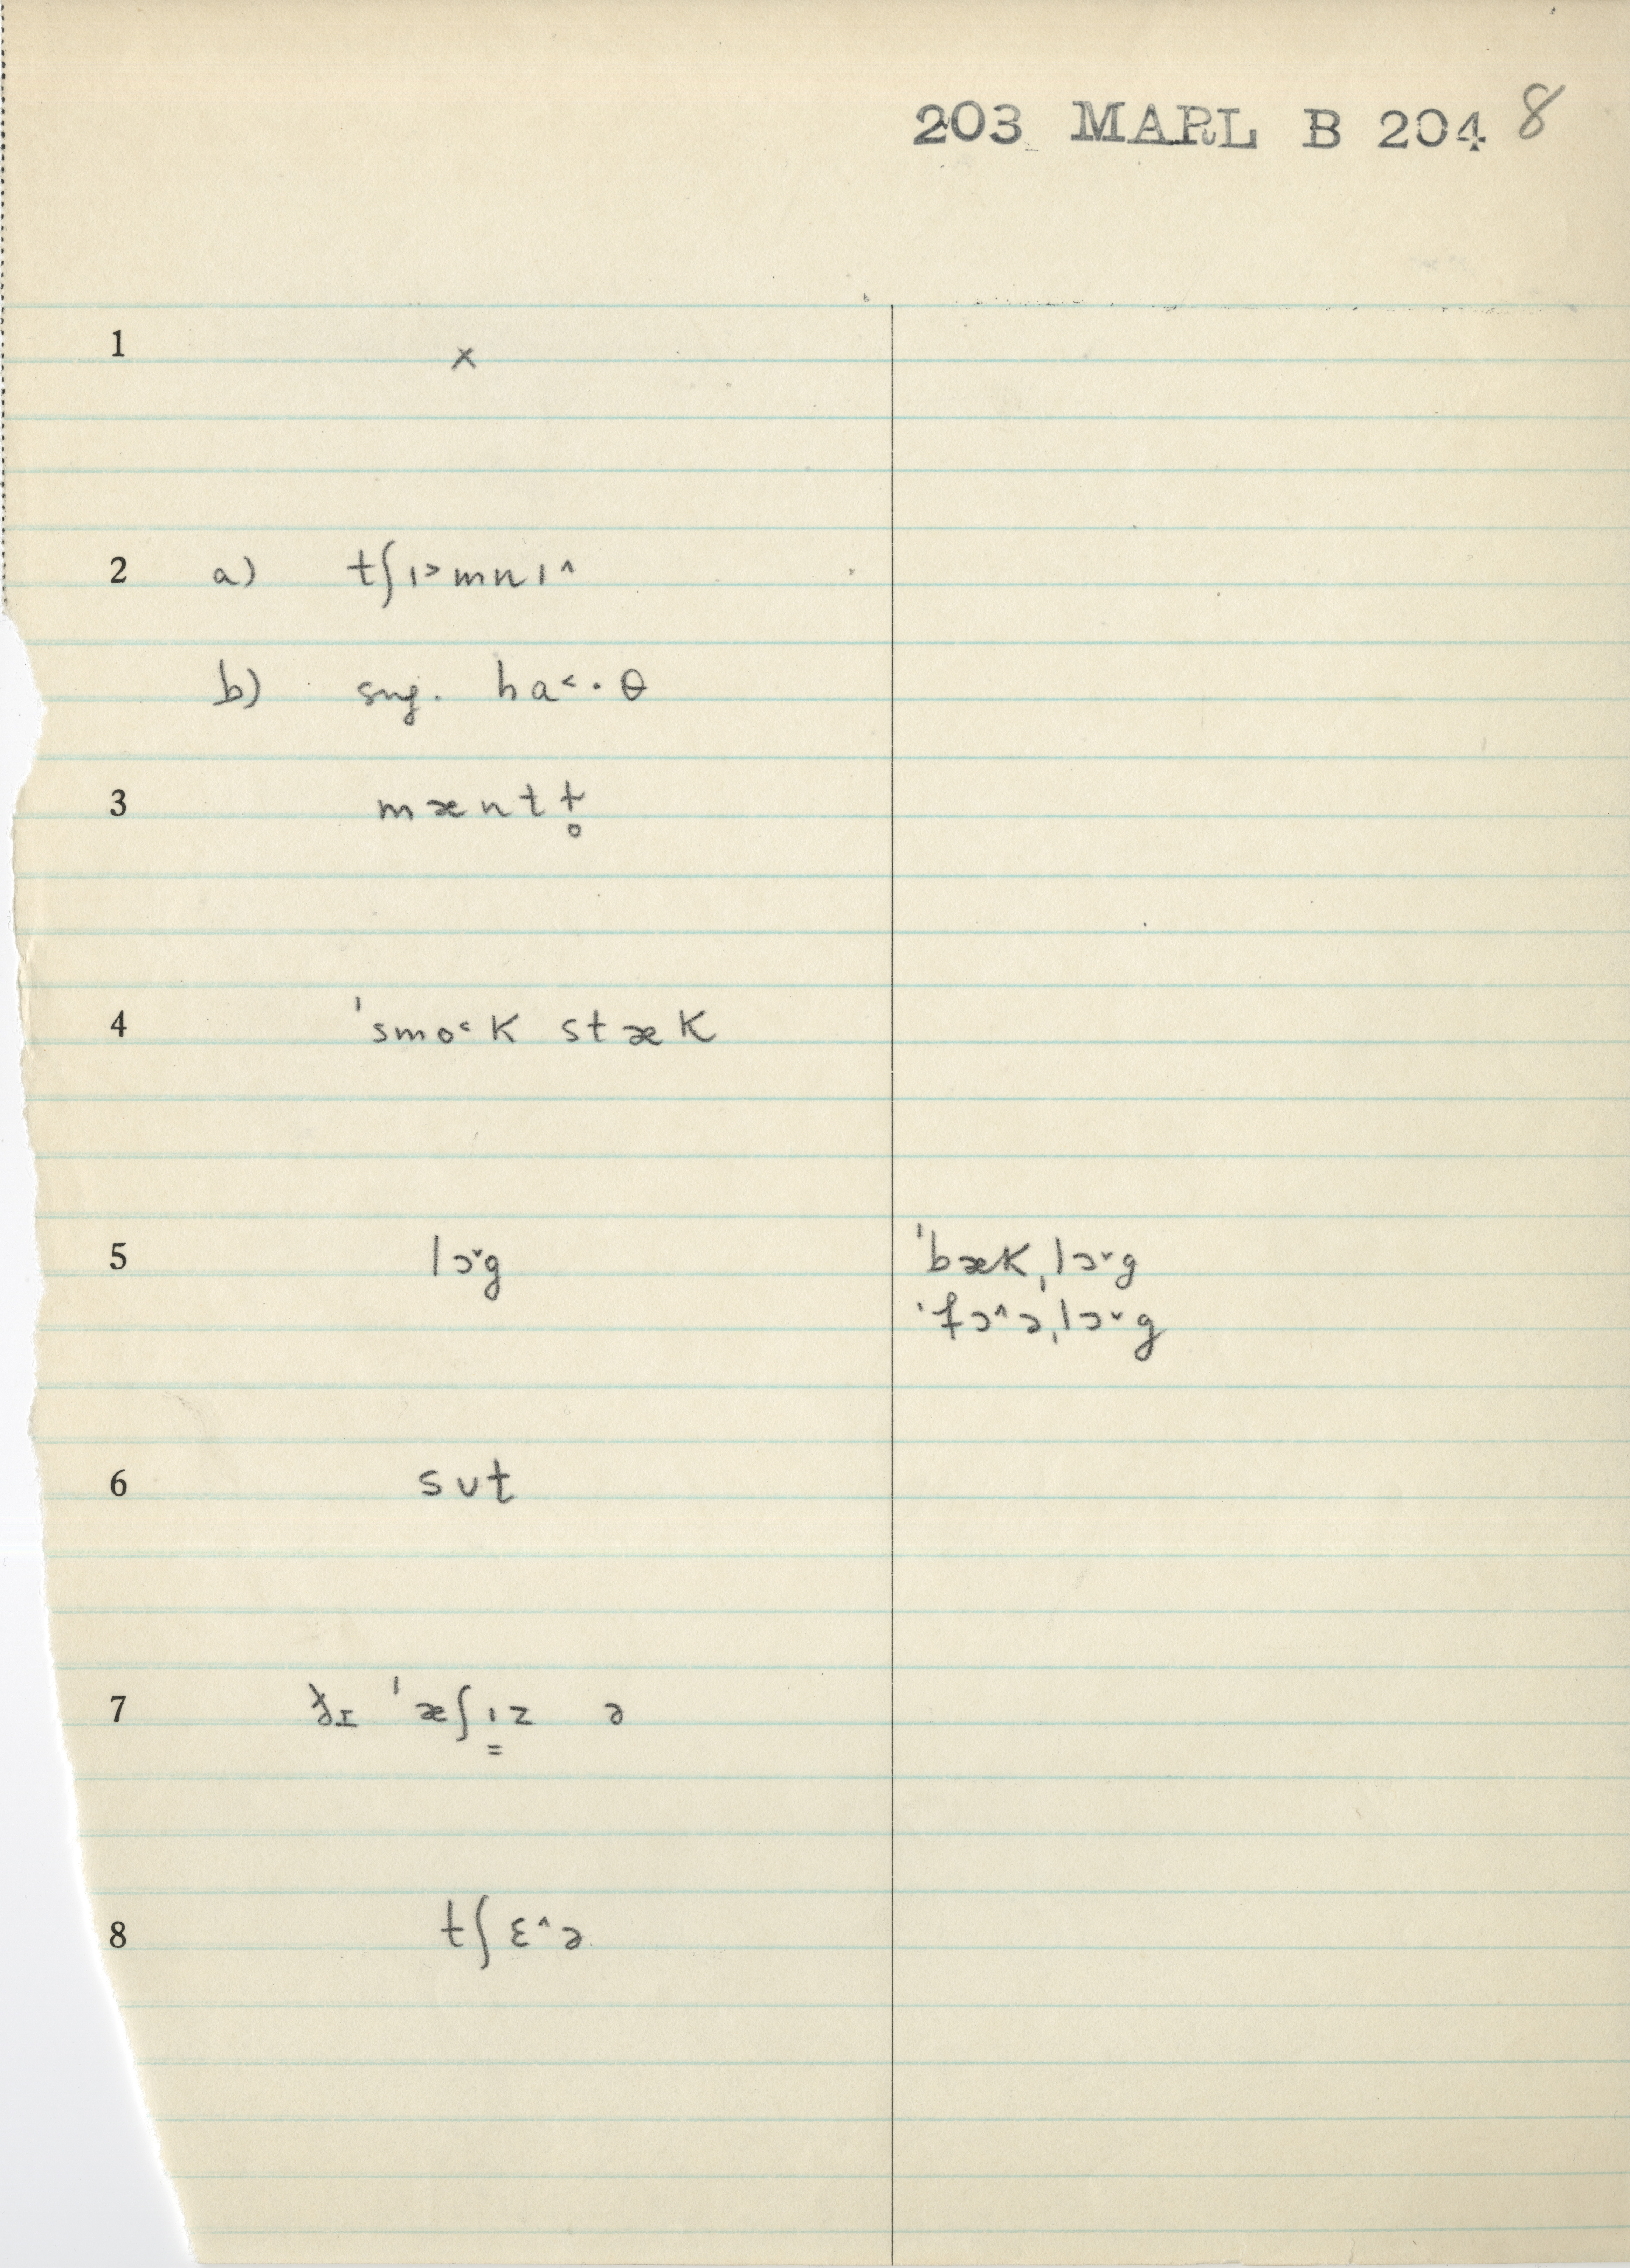 203 MARL B 204 8
1 x
2 a) tʃɪ˃mnɪ˄
b) sug. ha˂·θ
3 mæntɫ̥
4 ˈsmo˂k stæk
5 lɔ˅g ˈbækˌlɔ˅g
ˈfɔ˄əˌlɔ˅g
6 sʊt
7 ðɪ ˈæʃɪ̳z ə
8 tʃɛ˄ə